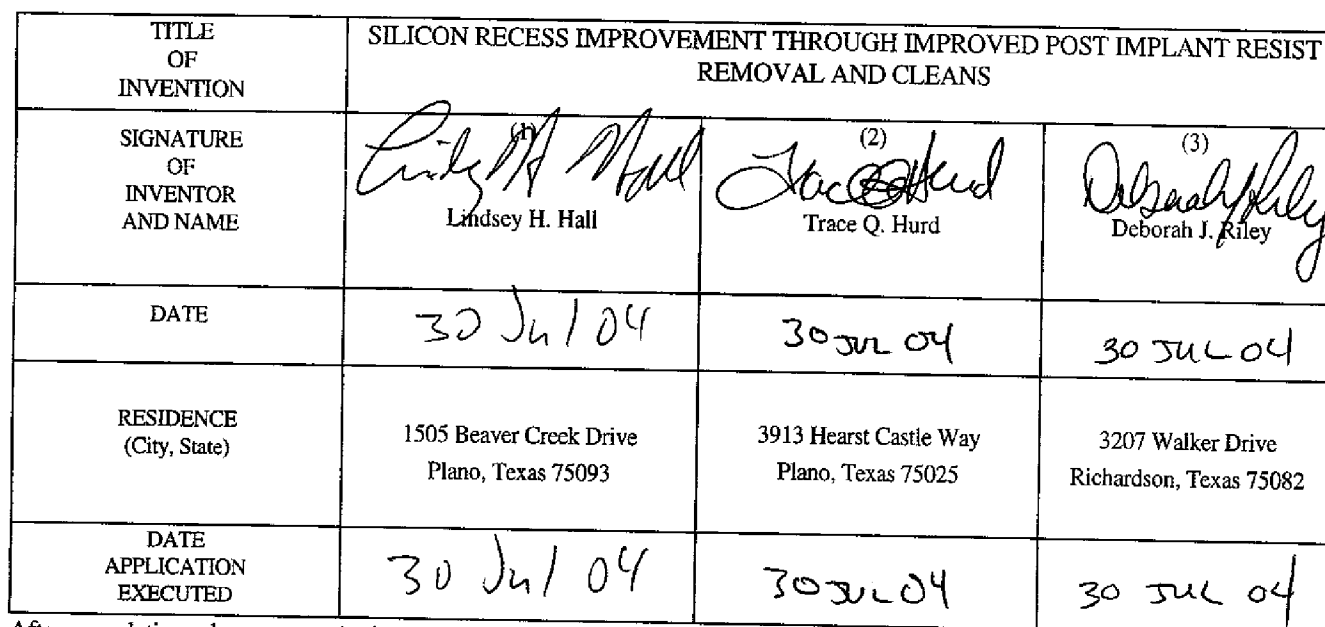 TITLE
OF
INVENTION
SILICON RECESS IMPROVEMENT THROUGH IMPROVED POST IMPLANT RESIST
REMOVAL AND CLEANS
SIGNATURE
OF
INVENTOR
AND NAME
(1)
Lindsey H. Hall
(2)
Trace Q. Hurd
(3)
Deborah J. Riley
DATE
30 Jul 04
30 JUL 04
30 JUL 04
RESIDENCE
(City, State)
1505 Beaver Creek Drive
Plano, Texas 75093
3913 Hearst Castle Way
Plano, Texas 75025
3207 Walker Drive
Richardson, Texas 75082
DATE
APPLICATION
EXECUTED
30 Jul 04
30 JUL 04
30 JUL 04